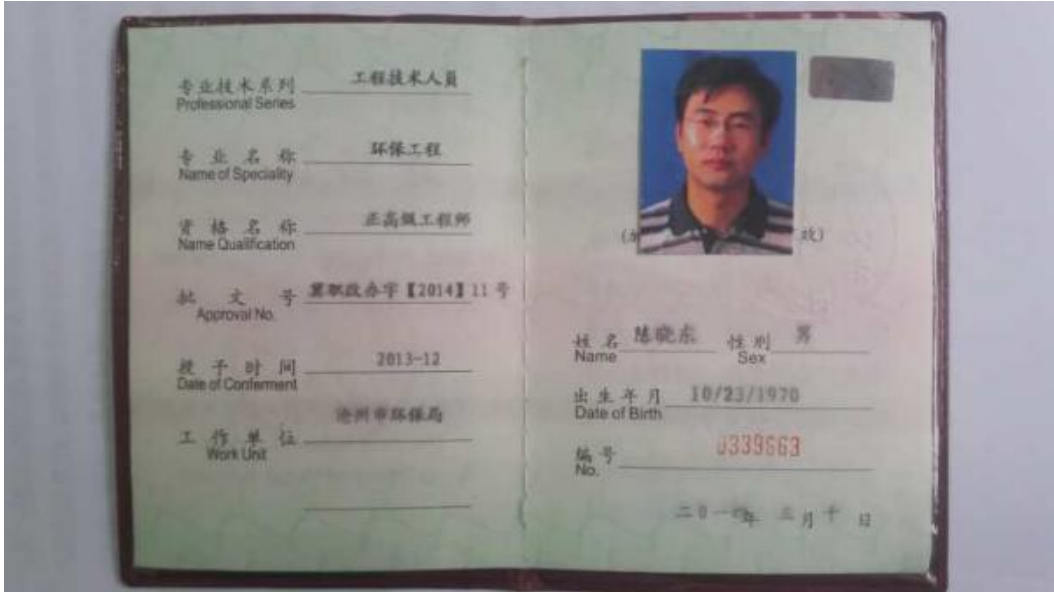 专业技术系列 工程技术人員
Professional Series
专业名称 环保工程
Name of Speciality
资格名称 正高级工程师
Name Qualification
批文号 冀职改办字【2014】11号
Approval No.
授予时间 2013-12
Date of Conferment
沧州市环保局
工作单位
Work Unit
效)
姓名 陈晓东 性别 男
Name Sex
出生年月 10/23/1970
Date of Birth
编号 0339663
No.
二0一四年 三月十日